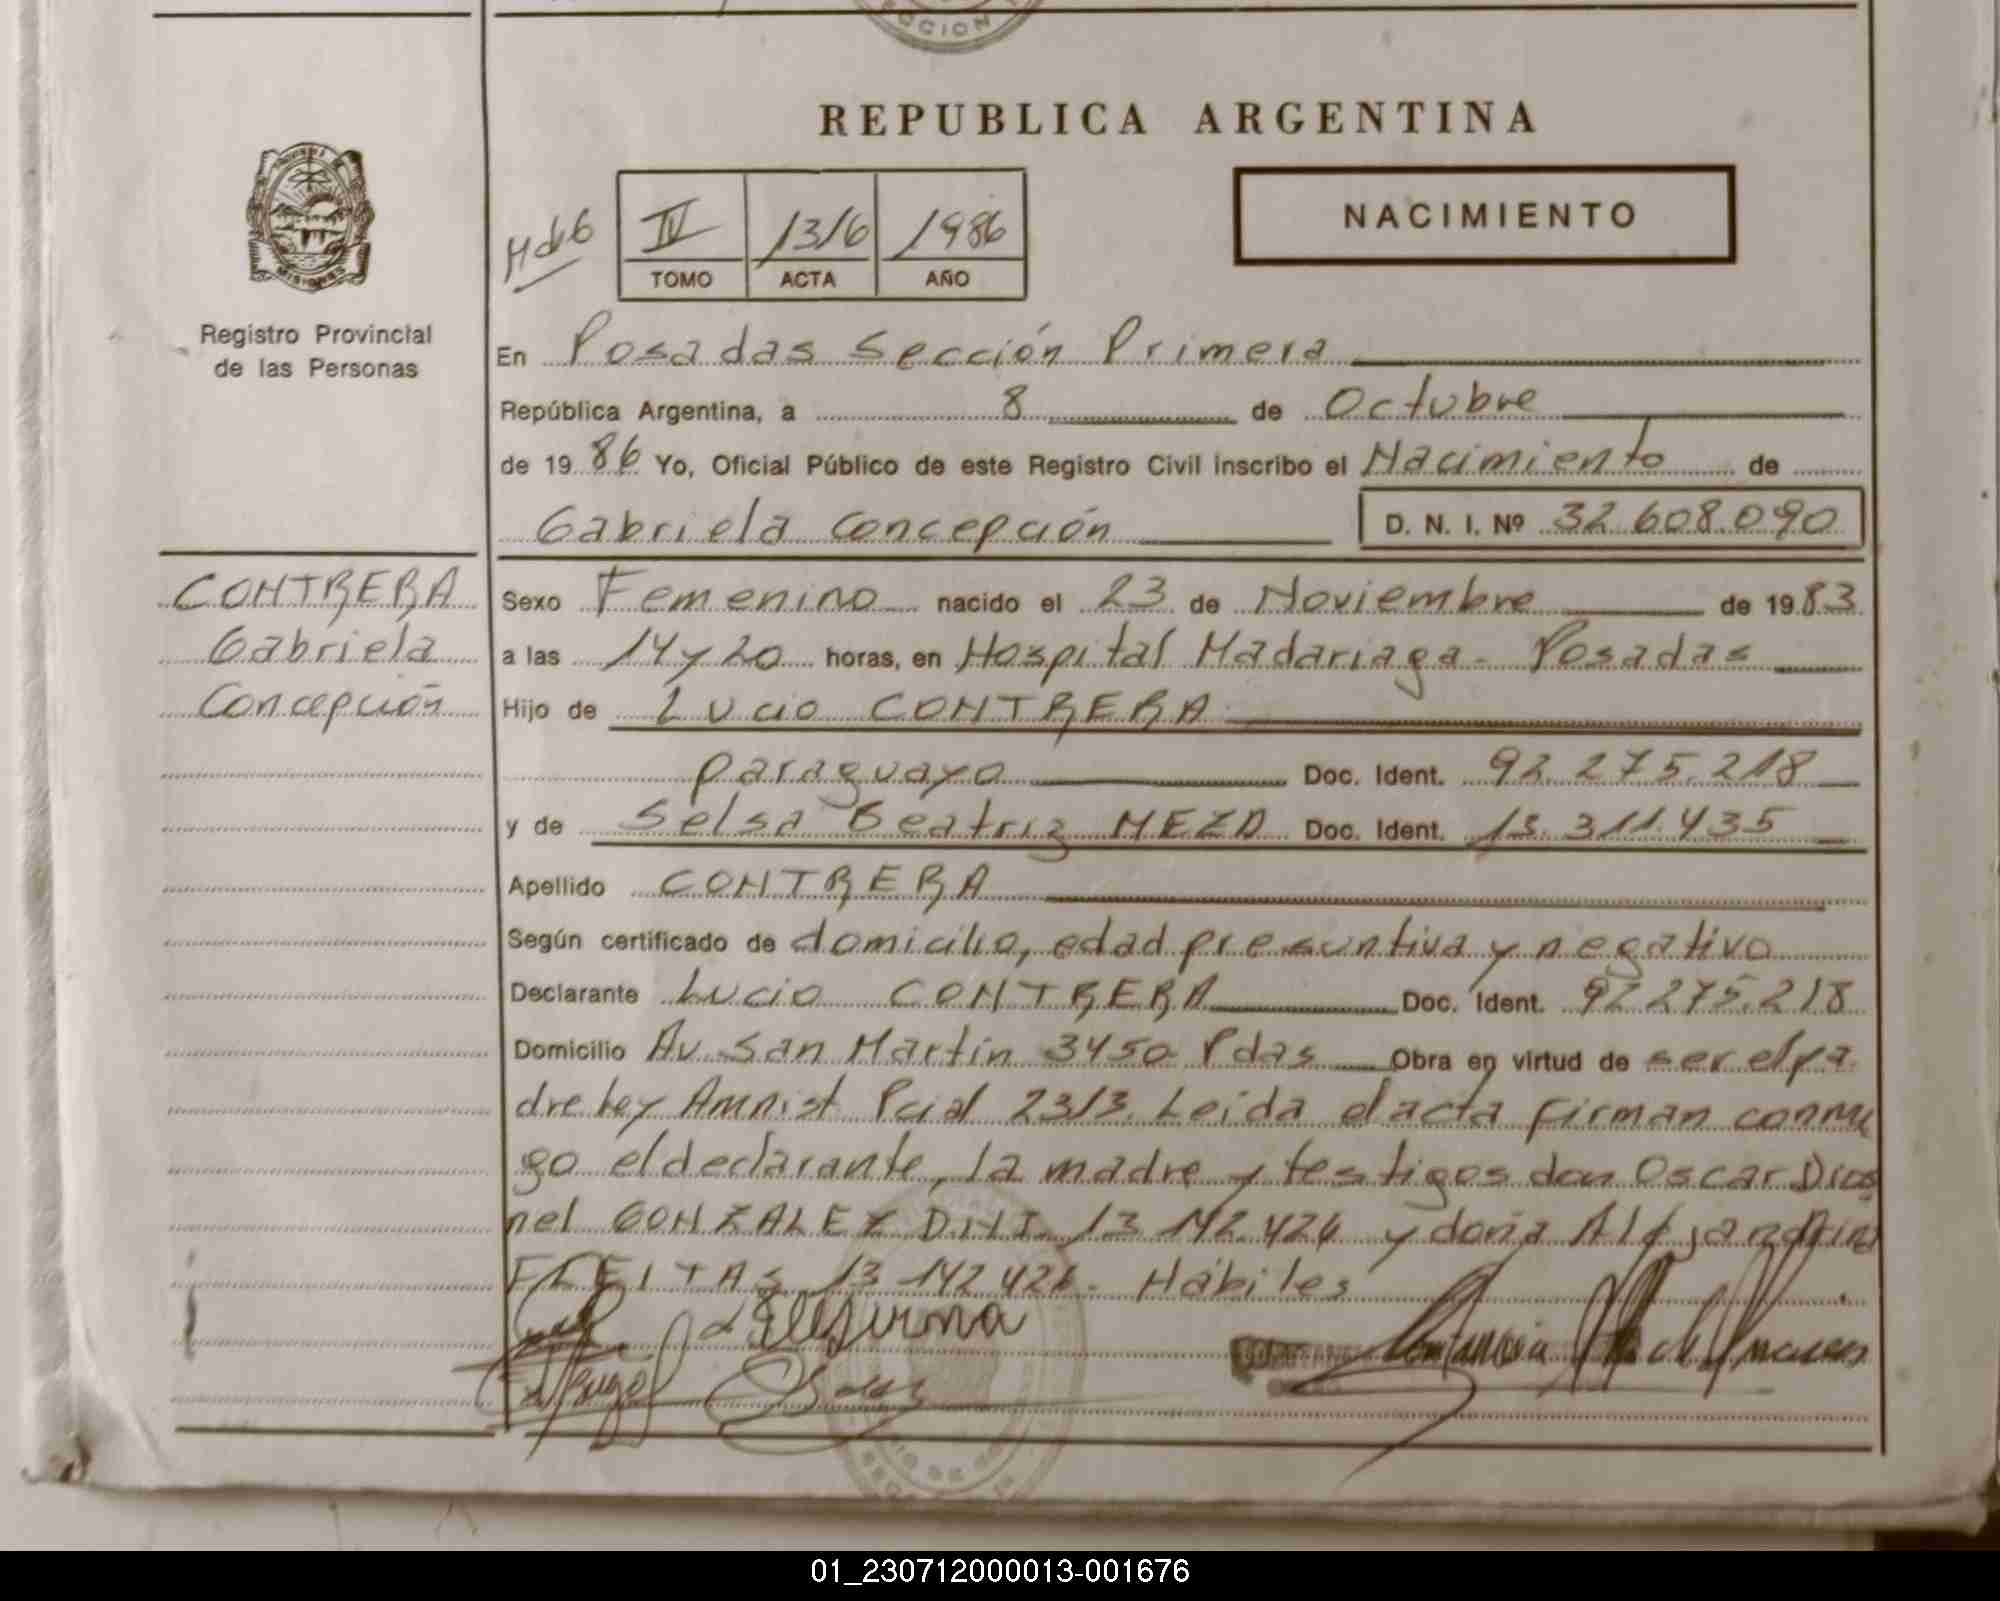 REPUBLICA ARGENTINA
NACIMIENTO
IV 1316 1986
TOMO ACTA AÑO
Registro Provincial
de las Personas
En Posadas Sección Primera
República Argentina, a 8 de Octubre
de 1986 Yo, Oficial Público de este Registro Civil inscribo el Nacimiento de
Gabriela Concepción D. N. I. Nº 32.608.090
CONTRERA
Gabriela
Concepción
Sexo Femenino nacido el 23 de Noviembre de 1983
a las 14 y 20 horas, en Hospital Madariaga - Posadas
Hijo de Lucio CONTRERA
paraguayo Doc. Ident. 92.275.218
y de Selsa Beatriz MEZA Doc. Ident. 13.311.435
Apellido CONTRERA
Según certificado de domicilio, edad presuntiva y negativo
Declarante Lucio CONTRERA Doc. Ident. 92.275.218
Domicilio Av San Martin 3450 Pdas Obra en virtud de ser el pa
dre Ley Amnist Pcial 2313. Leida el acta firman conmi
go el declarante, la madre y testigos don Oscar
nel GONZALEZ D.N.I. 13.142.424 y doña
FLEITAS 13.142.426 - Hábiles
01_230712000013-001676